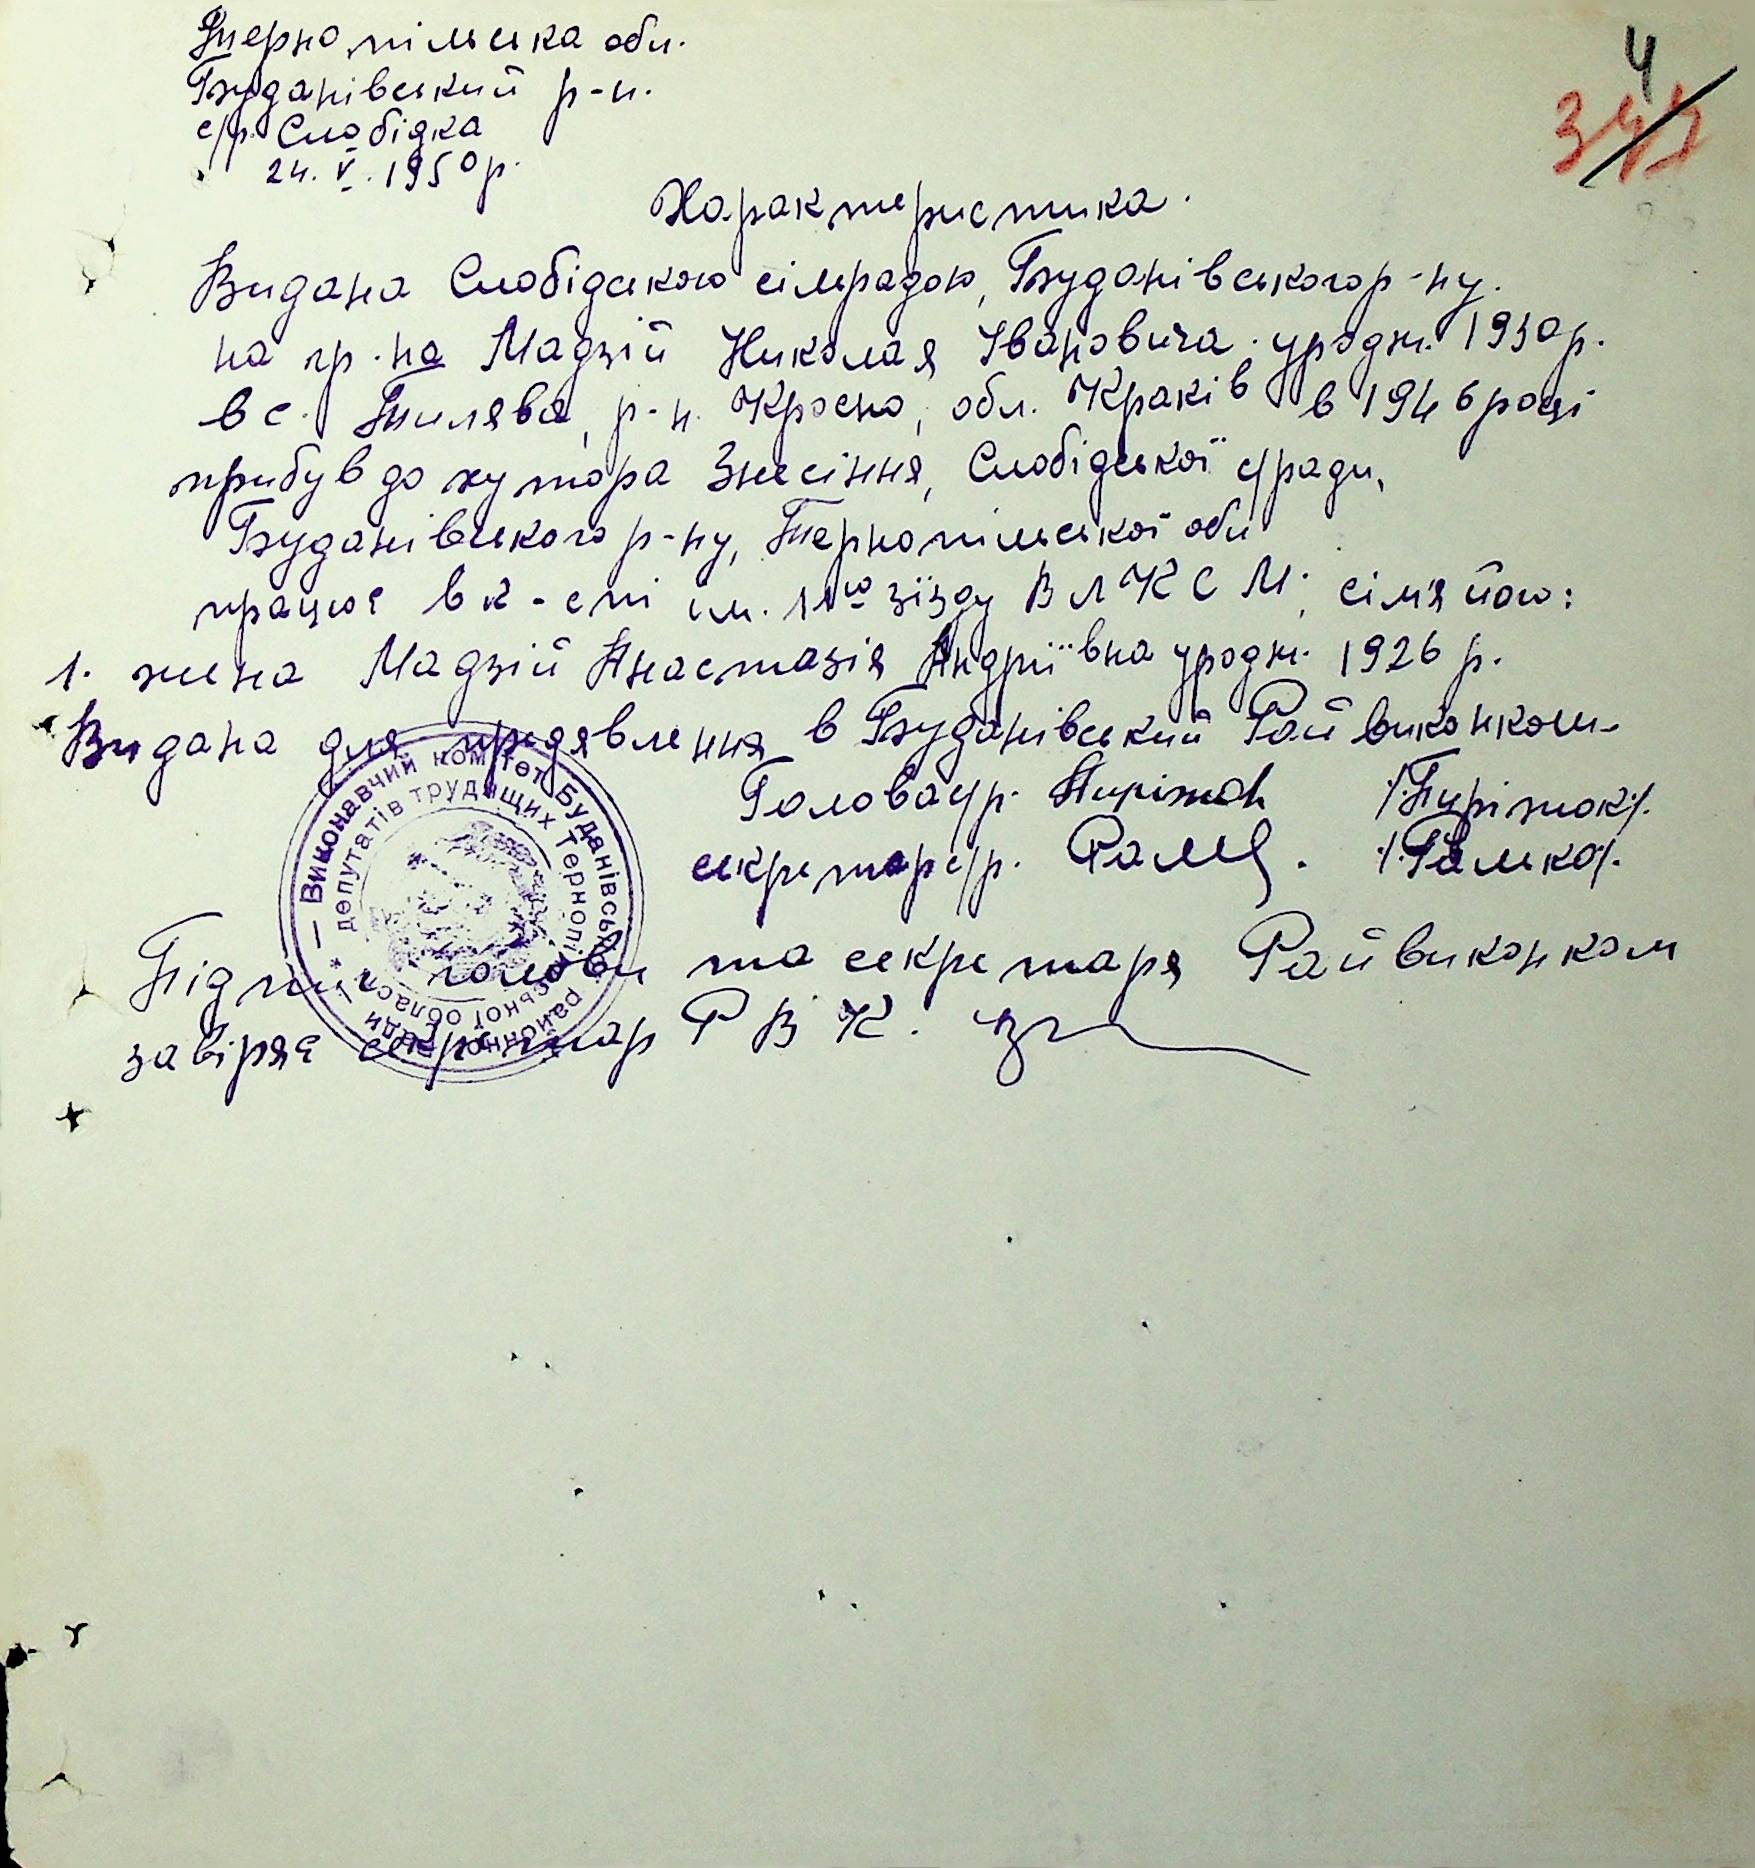 4
Тернопільська обл.
Буданівський р-н.
с/р. Слобідка
24. V. 1950 р.
Характеристика.
Видана Слобідською сільрадою, Буданівського р-ну.
на гр-на Мадзій Николая Івановича уродж. 1930 р.
в с. Тилява, р-н. Кросно, обл. Краків в 1946 році
прибув до хутора Знесіння, Слобідської с/ради,
Буданівського р-ну, Тернопільської обл
працює в к-спі ім. 11го зїзду ВЛКСМ, сімя його:
1. жена Мадзій Анастазія Андріївна уродж. 1926 р.
Видана для предявлення в Буданівський Райвиконком.
Голова с/р. /.Пиріжок/.
секретар с/р. /.Ралько/.
Підпис голови та секретаря Райвиконком
завіряє секретар РВК.
Виконавчий комітет Буданівської районної ради
депутатів трудящих Тернопільської області